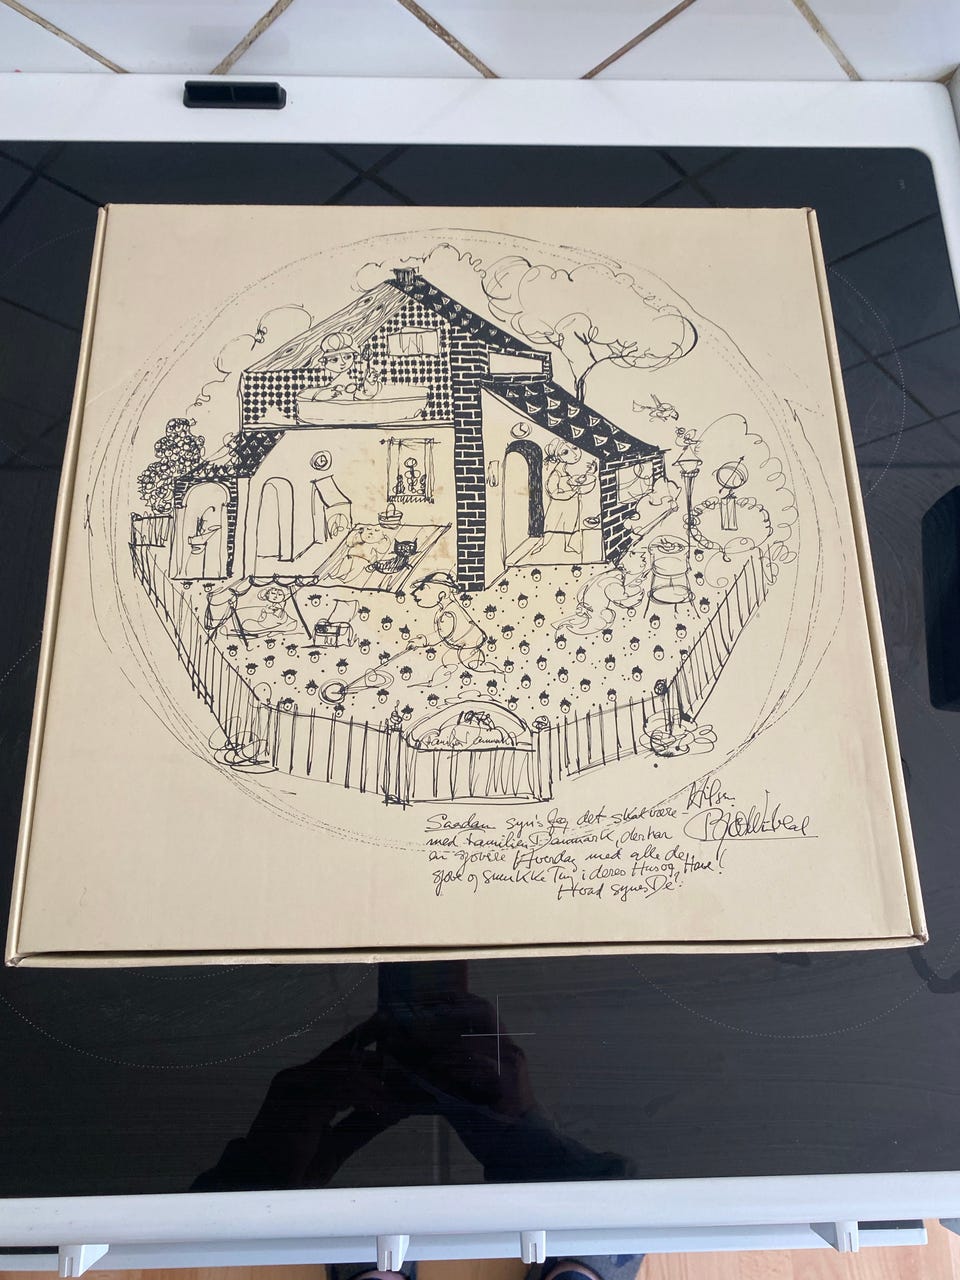 1978
Familien Danmark
Hilsn
Saadan syn's Jeg det skal være
Bjørn Wiinblad
med Familien Danmark, der har
en sjovere Hverdag med alle de
sjove og smukke Ting i deres Hus og Have!
Hvad synes De?